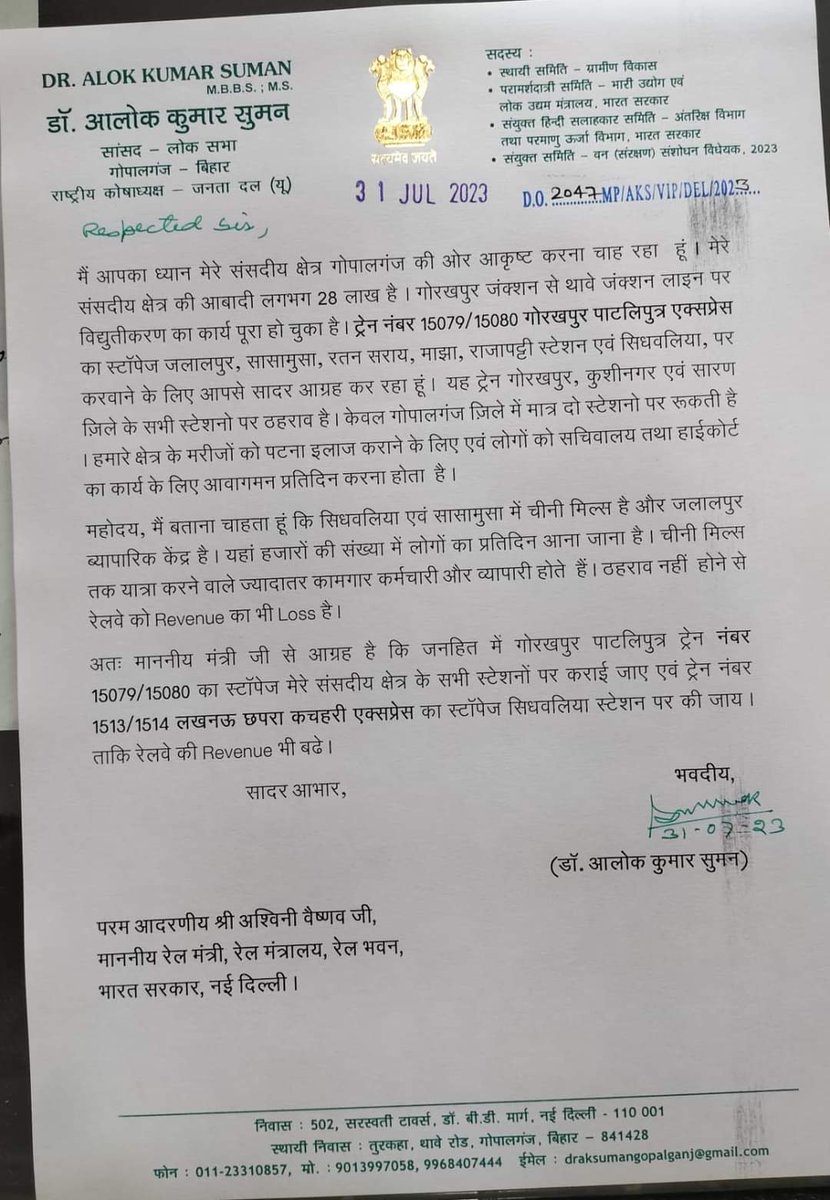 DR. ALOK KUMAR SUMAN
M.B.B.S. ; M.S.
डॉ. आलोक कुमार सुमन
सांसद – लोक सभा
गोपालगंज – बिहार
राष्ट्रीय कोषाध्यक्ष – जनता दल (यू)
सत्यमेव जयते
सदस्य :
• स्थायी समिति – ग्रामीण विकास
• परामर्शदात्री समिति – भारी उद्योग एवं
लोक उद्यम मंत्रालय, भारत सरकार
• संयुक्त हिन्दी सलाहकार समिति – अंतरिक्ष विभाग
तथा परमाणु ऊर्जा विभाग, भारत सरकार
• संयुक्त समिति – वन (संरक्षण) संशोधन विधेयक, 2023
31 JUL 2023
D.O. 2047 MP/AKS/VIP/DEL/2023
Respected Sir,
मैं आपका ध्यान मेरे संसदीय क्षेत्र गोपालगंज की ओर आकृष्ट करना चाह रहा हूं । मेरे
संसदीय क्षेत्र की आबादी लगभग 28 लाख है । गोरखपुर जंक्शन से थावे जंक्शन लाइन पर
विद्युतीकरण का कार्य पूरा हो चुका है । ट्रेन नंबर 15079/15080 गोरखपुर पाटलिपुत्र एक्सप्रेस
का स्टॉपेज जलालपुर, सासामुसा, रतन सराय, माझा, राजापट्टी स्टेशन एवं सिधवलिया, पर
करवाने के लिए आपसे सादर आग्रह कर रहा हूं । यह ट्रेन गोरखपुर, कुशीनगर एवं सारण
ज़िले के सभी स्टेशनो पर ठहराव है । केवल गोपालगंज ज़िले में मात्र दो स्टेशनो पर रूकती है
। हमारे क्षेत्र के मरीजों को पटना इलाज कराने के लिए एवं लोगों को सचिवालय तथा हाईकोर्ट
का कार्य के लिए आवागमन प्रतिदिन करना होता है ।
महोदय, मैं बताना चाहता हूं कि सिधवलिया एवं सासामुसा में चीनी मिल्स है और जलालपुर
ब्यापारिक केंद्र है । यहां हजारों की संख्या में लोगों का प्रतिदिन आना जाना है । चीनी मिल्स
तक यात्रा करने वाले ज्यादातर कामगार कर्मचारी और व्यापारी होते हैं । ठहराव नहीं होने से
रेलवे को Revenue का भी Loss है ।
अतः माननीय मंत्री जी से आग्रह है कि जनहित में गोरखपुर पाटलिपुत्र ट्रेन नंबर
15079/15080 का स्टॉपेज मेरे संसदीय क्षेत्र के सभी स्टेशनों पर कराई जाए एवं ट्रेन नंबर
1513/1514 लखनऊ छपरा कचहरी एक्सप्रेस का स्टॉपेज सिधवलिया स्टेशन पर की जाय ।
ताकि रेलवे की Revenue भी बढे ।
सादर आभार,
भवदीय,
31-07-23
(डॉ. आलोक कुमार सुमन)
परम आदरणीय श्री अश्विनी वैष्णव जी,
माननीय रेल मंत्री, रेल मंत्रालय, रेल भवन,
भारत सरकार, नई दिल्ली ।
निवास : 502, सरस्वती टावर्स, डॉ. बी.डी. मार्ग, नई दिल्ली - 110 001
स्थायी निवास : तुरकहा, थावे रोड, गोपालगंज, बिहार – 841428
फोन : 011-23310857, मो. : 9013997058, 9968407444 ईमेल : draksumangopalganj@gmail.com